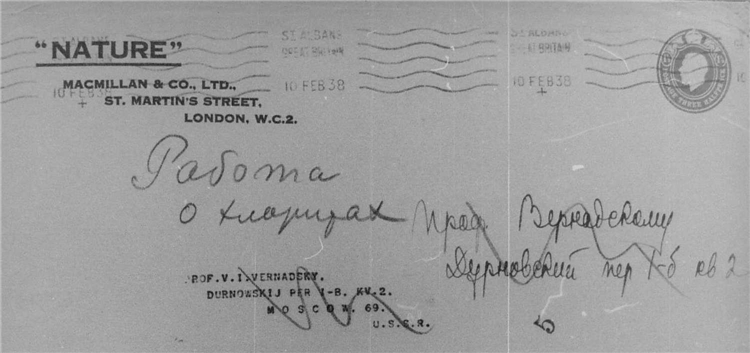 "NATURE"
MACMILLAN & CO., LTD.,
ST. MARTIN'S STREET,
LONDON, W.C.2.
ST ALBANS
GREAT BRITAIN
10 FEB 38
ST ALBANS
GREAT BRITAIN
10 FEB 38
10 FEB 38
Работа
о хлоритах
Проф. Вернадскому
Дурновский пер 1-б кв 2
PROF.V.I.VERNADSKY.
DURNOWSKIJ PER I-B. KV.2.
MOSCOW. 69.
U.S.S.R.
5